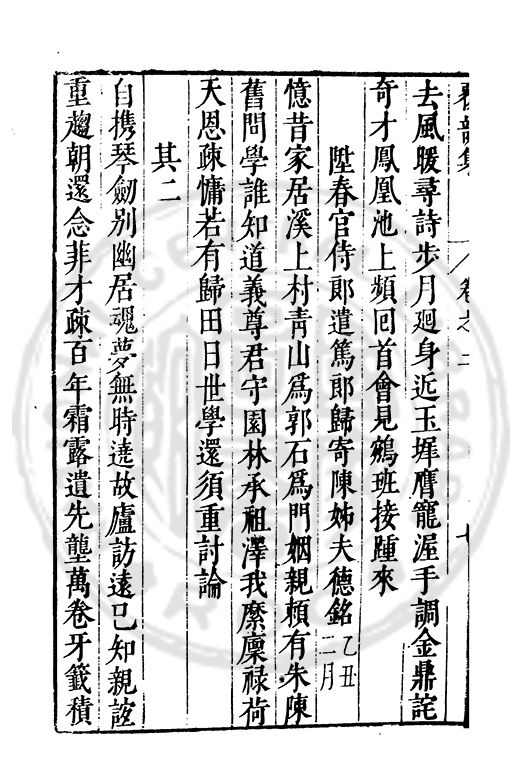 去風暖尋詩步月廻身近玉墀膺寵渥手調金鼎詫
奇才鳳凰池上頻回首會見鵷班接踵來
陞春官侍郎遣篤郎歸寄陳姊夫德銘乙丑二月
憶昔家居溪上村青山爲郭石爲門姻親頼有朱陳
舊問學誰知道義尊君守園林承祖澤我縻廩禄荷
天恩疎慵若有歸田日世學還須重討論
其二
自携琴劒別幽居魂夢無時遶故廬訪遠已知親誼
重趨朝還念菲才疎百年霜露遺先壟萬卷牙籤積